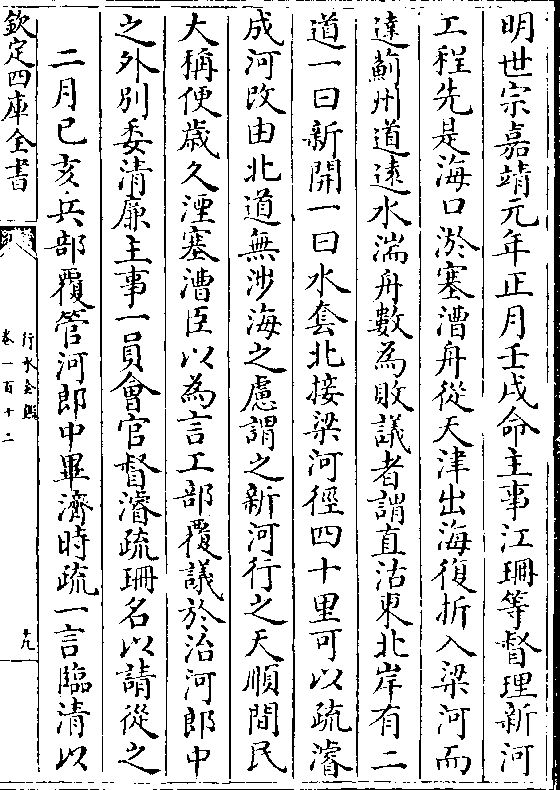 明世宗嘉靖元年正月壬戌命主事江珊等督理新河
工程先是海口淤塞漕舟從天津出海復折入梁河而
達薊州道遠水湍舟數為敗議者謂直沽東北岸有二
道一曰新開一曰水套北接梁河徑四十里可以疏濬
成河改由北道無涉海之慮謂之新河行之天順間民
大稱便歲久湮塞漕臣以為言工部覆議於治河郎中
之外別委清廉主事一員會官督濬疏珊名以請從之
二月己亥兵部覆管河郎中畢濟時疏一言臨清以
欽定四庫全書
行水金鑑
卷一百十二
十九